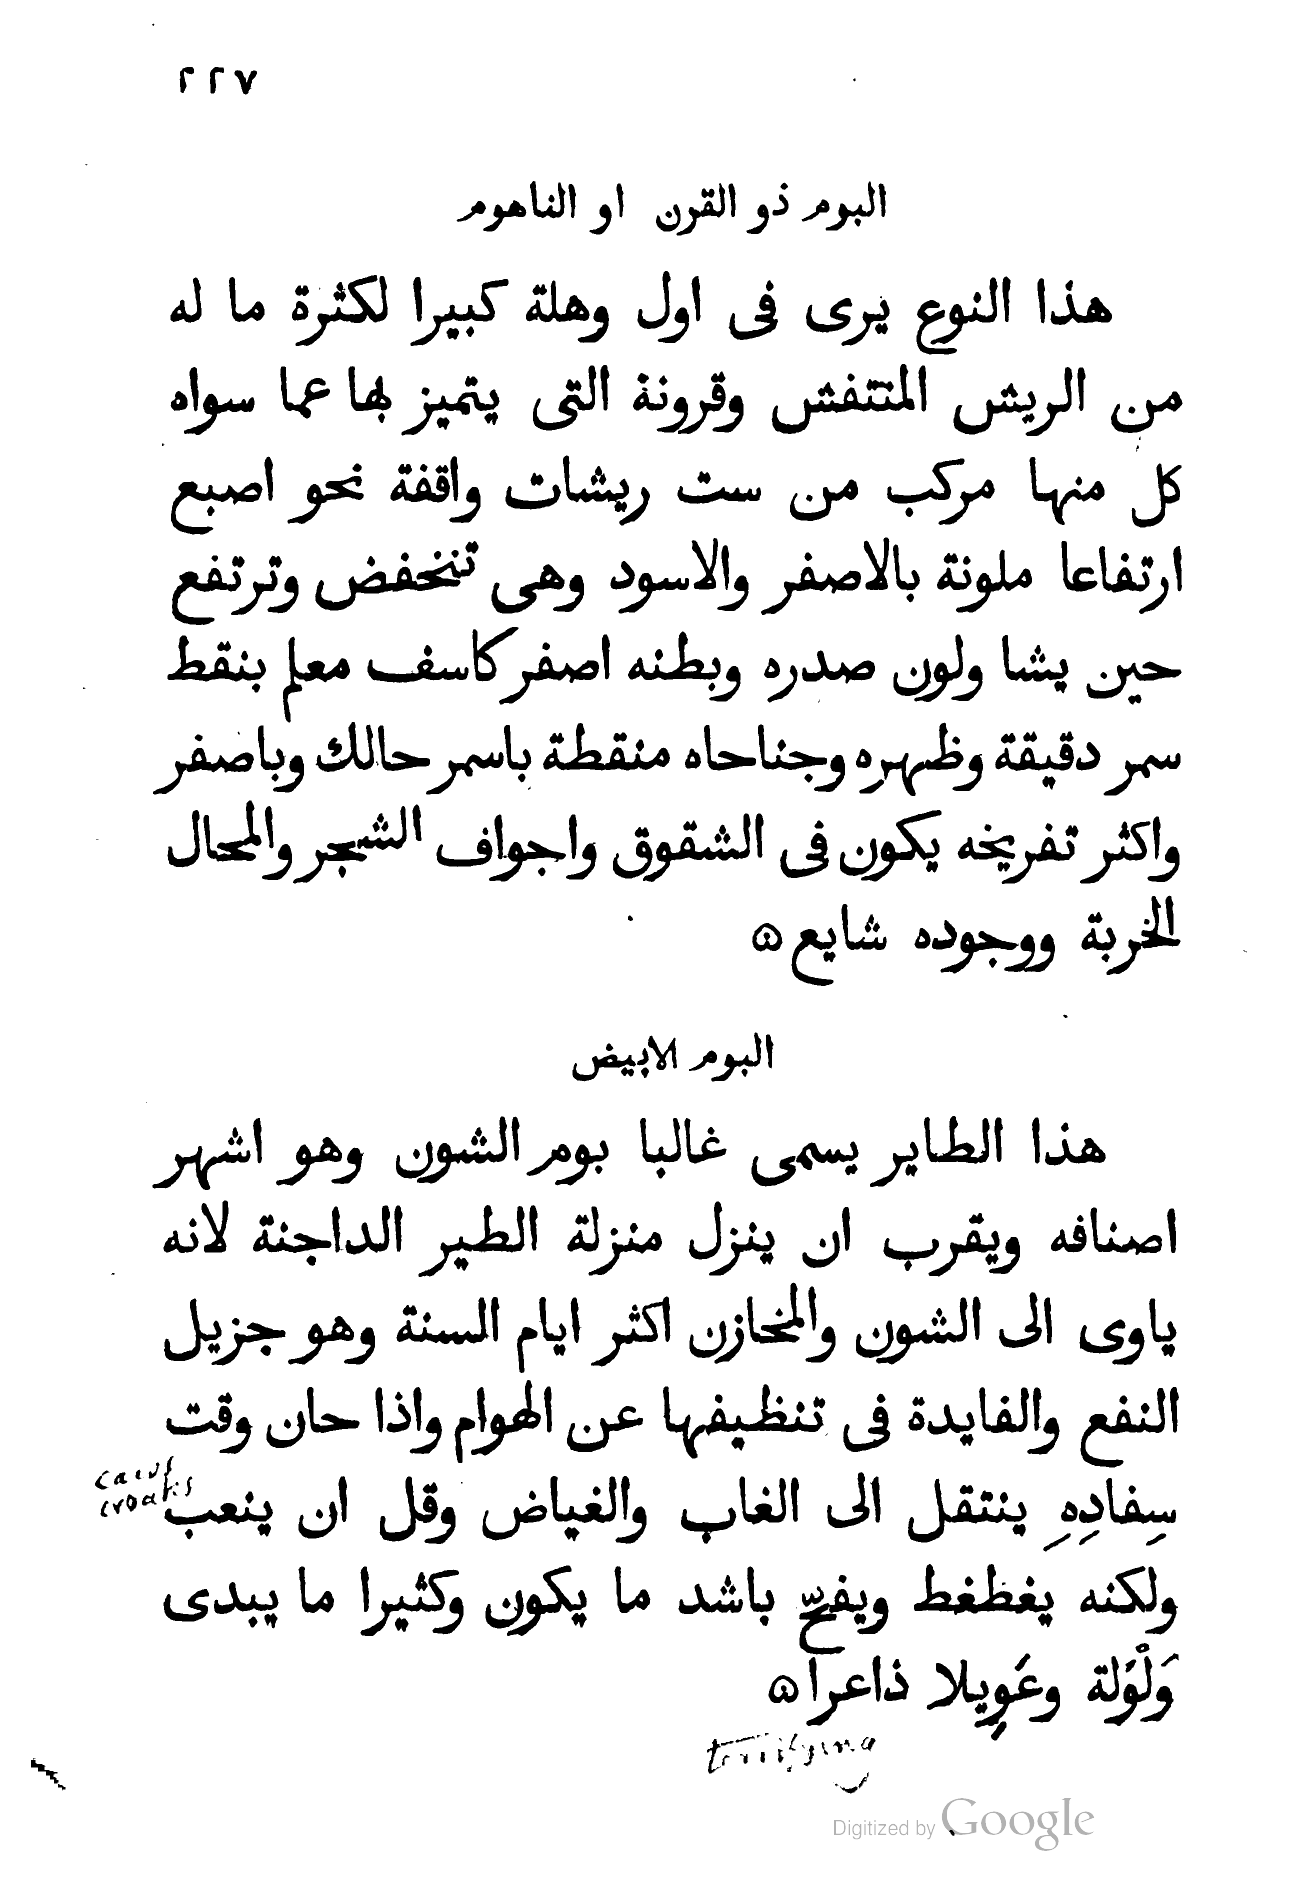 ٢٢٧
البوم ذو القرن او الناهوم
هذا النوع يرى فى اول وهلة كبيرا لكثرة ما له
من الريش المنتفش وقرونة التى يتميز بها عما سواه
كل منها مركب من ست ريشات واقفة نحو اصبع
ارتفاعا ملونة بالاصفر والاسود وهى تنخفض وترتفع
حين يشا ولون صدره وبطنه اصفر كاسف معلم بنقط
سمر دقيقة وظهره وجناحاه منقطة باسمر حالك وباصفر
واكثر تفريخه يكون فى الشقوق واجواف الشجر والمحال
الخربة ووجوده شايع ۞
البوم الابيض
هذا الطاير يسمى غالبا بوم الشون وهو اشهر
اصنافه ويقرب ان ينزل منزلة الطير الداجنة لانه
ياوى الى الشون والمخازن اكثر ايام السنة وهو جزيل
النفع والفايدة فى تنظيفها عن الهوام واذا حان وقت
سِفادِهِ ينتقل الى الغاب والغياض وقل ان ينعب
caws
croaks
ولكنه يغطغط ويفحّ باشد ما يكون وكثيرا ما يبدى
وَلْوَلة وعَوِيلا ذاعرا ۞
terrifying
Digitized by Google